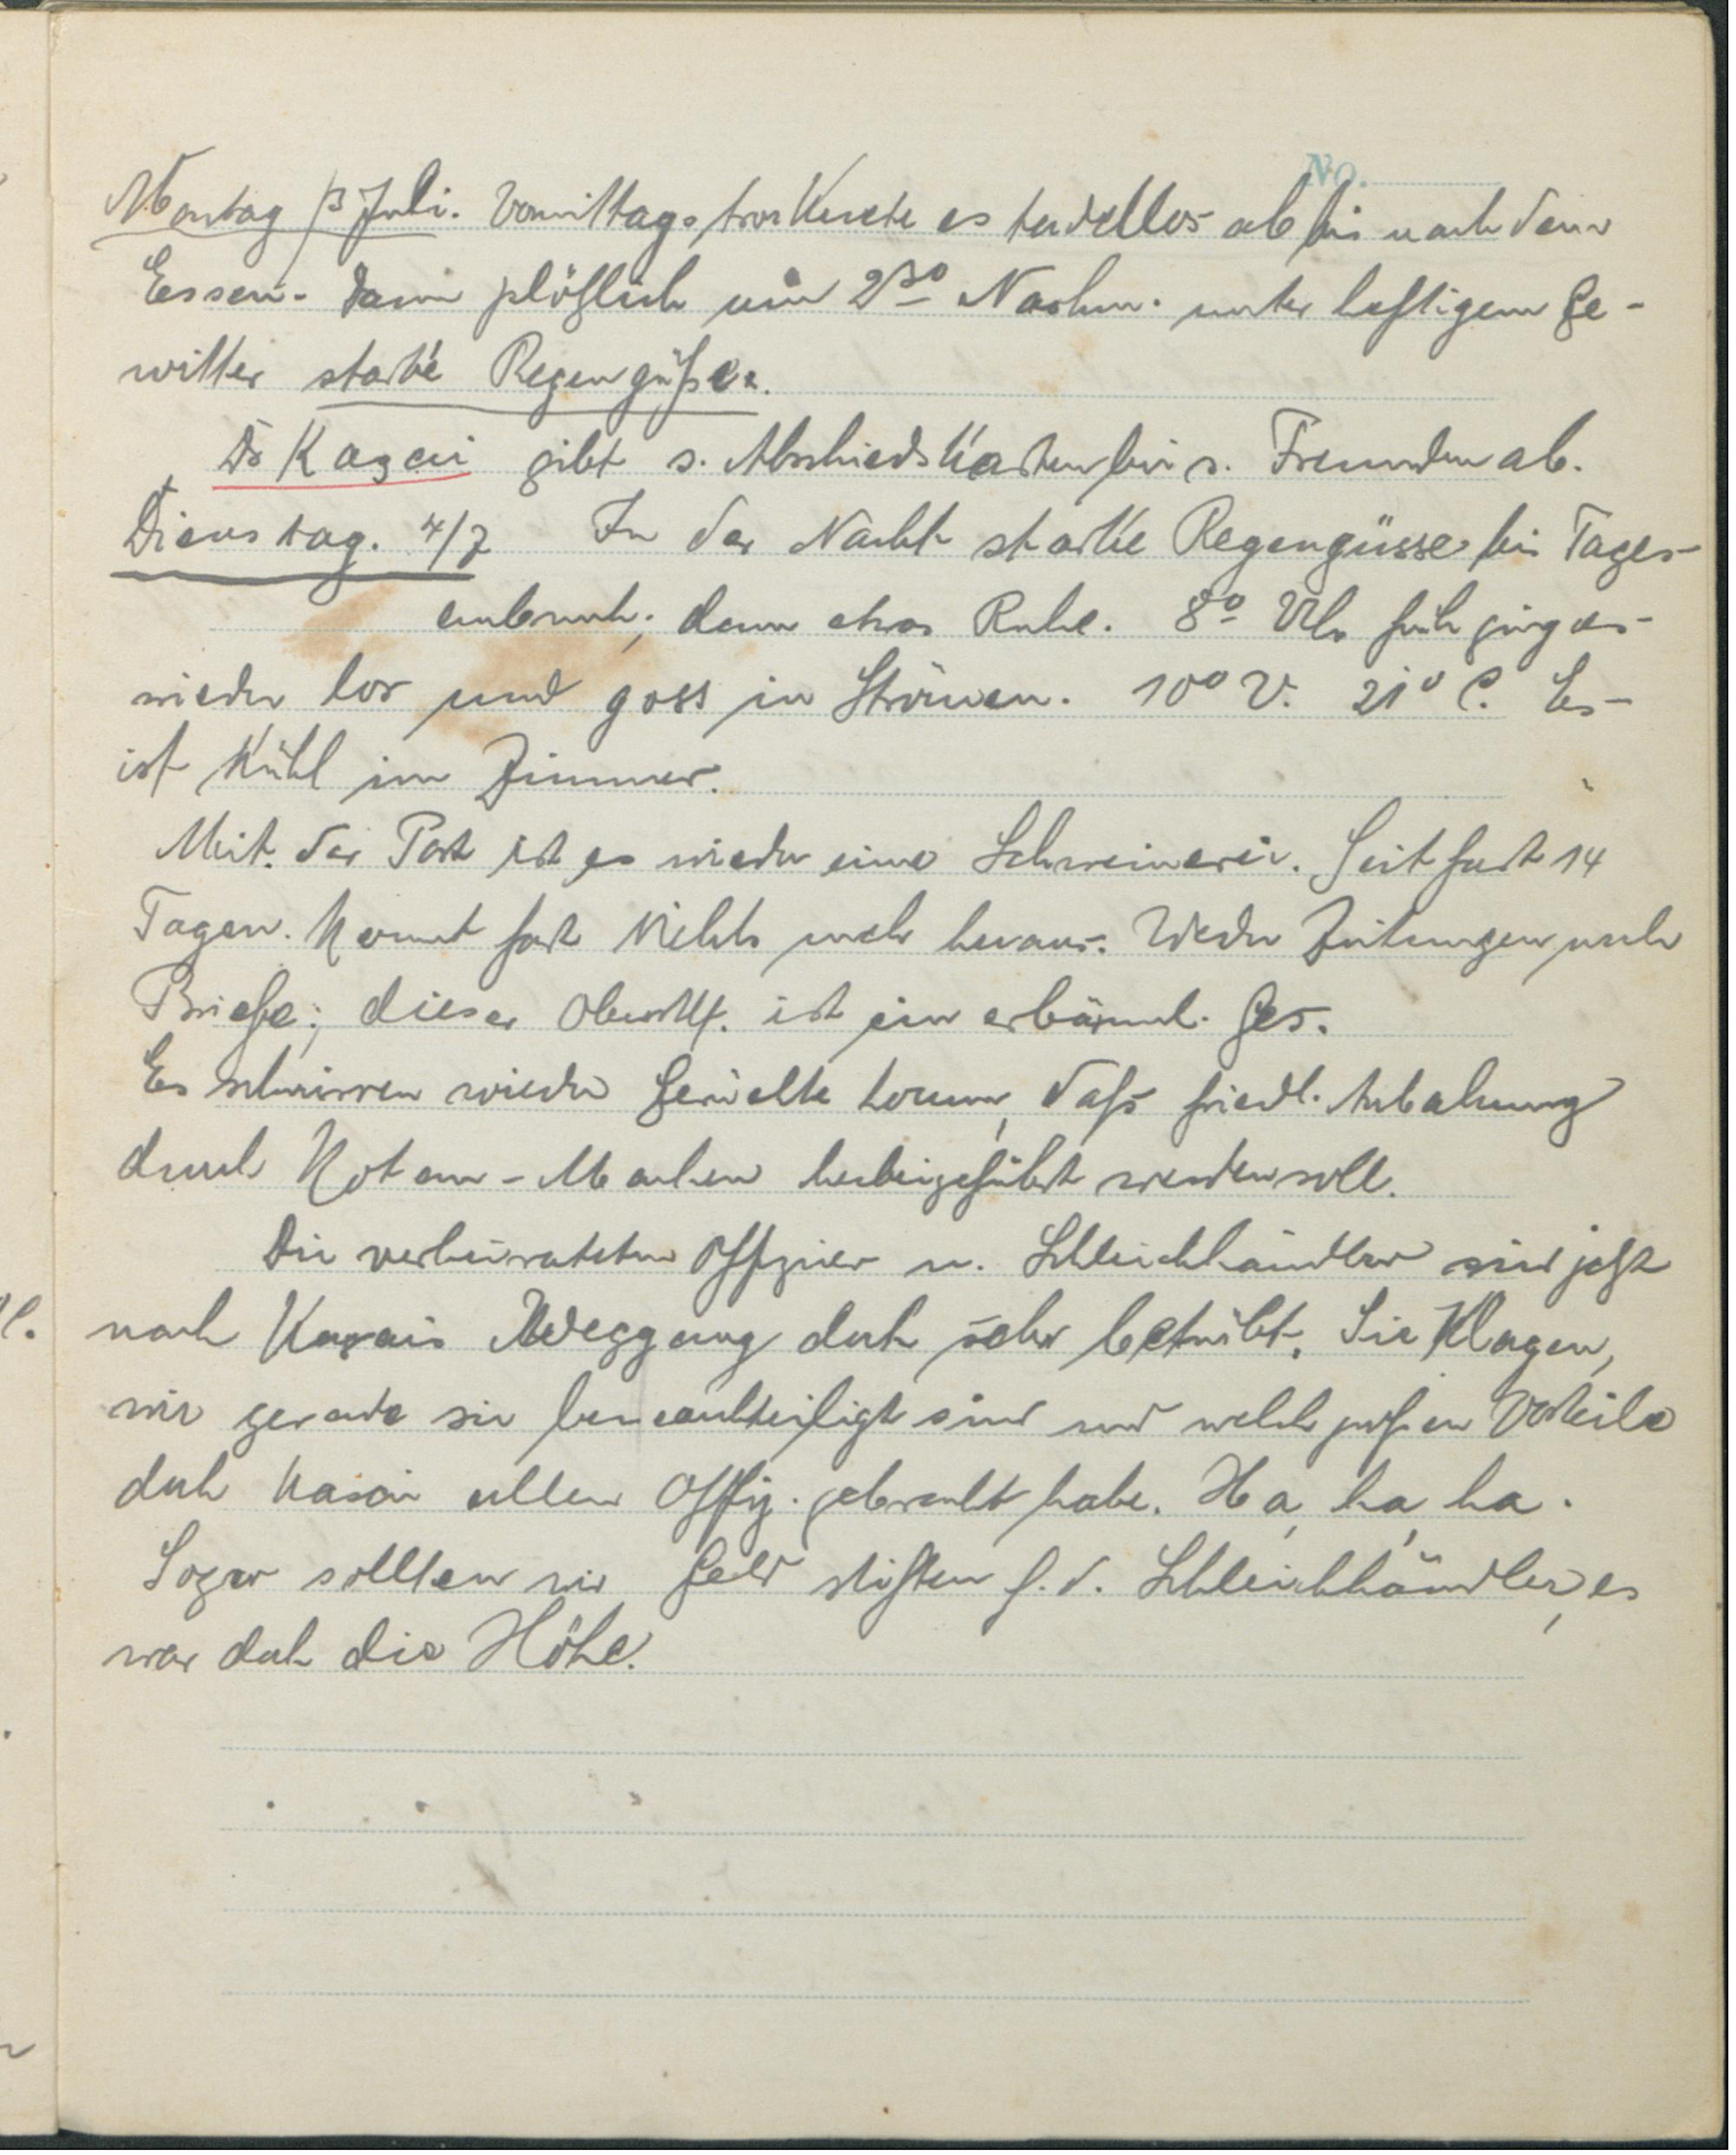 No.
Montag 3 Juli. Vormittags trocknete es tadellos ab bis nach dem
Essen. Dann plötzlich um 2³⁰ Nachm. unter heftigem Ge-
witter starke Regengüße.
Dr Kasai gibt s. Abschiedskarten bei s. Freunden ab.
Dienstag. 4/7 In der Nacht starke Regengüsse bis Tages-
anbruch; dann etwas Ruhe. 8⁰ Uhr früh ging es
wieder los und goss in Strömen. 10⁰ V. 21° C. Es
ist kühl im Zimmer.
Mit der Post ist es wieder eine Schweinerei. Seit fast 14
Tagen kommt fast Nichts mehr heraus. Weder Zeitungen noch
Briefe; dieser ist ein erbärml. Ges.
Es schwirren wieder Gerüchte herum, daß friedl. Anbahnung
durch Noten-Machen herbeigeführt werden soll.
Die verheirateten Offizier u. Schleichhändler sind jetzt
nach Kasais Weggang doch sehr betrübt. Sie klagen,
wie gerade sie benachteiligt sind und welch großen Vorteile
doch Kasai allen Offiz. gebracht habe. Ha, ha, ha.
Sogar sollten wir Geld stiften f. d. Schleichhändler, es
war doch die Höhe.